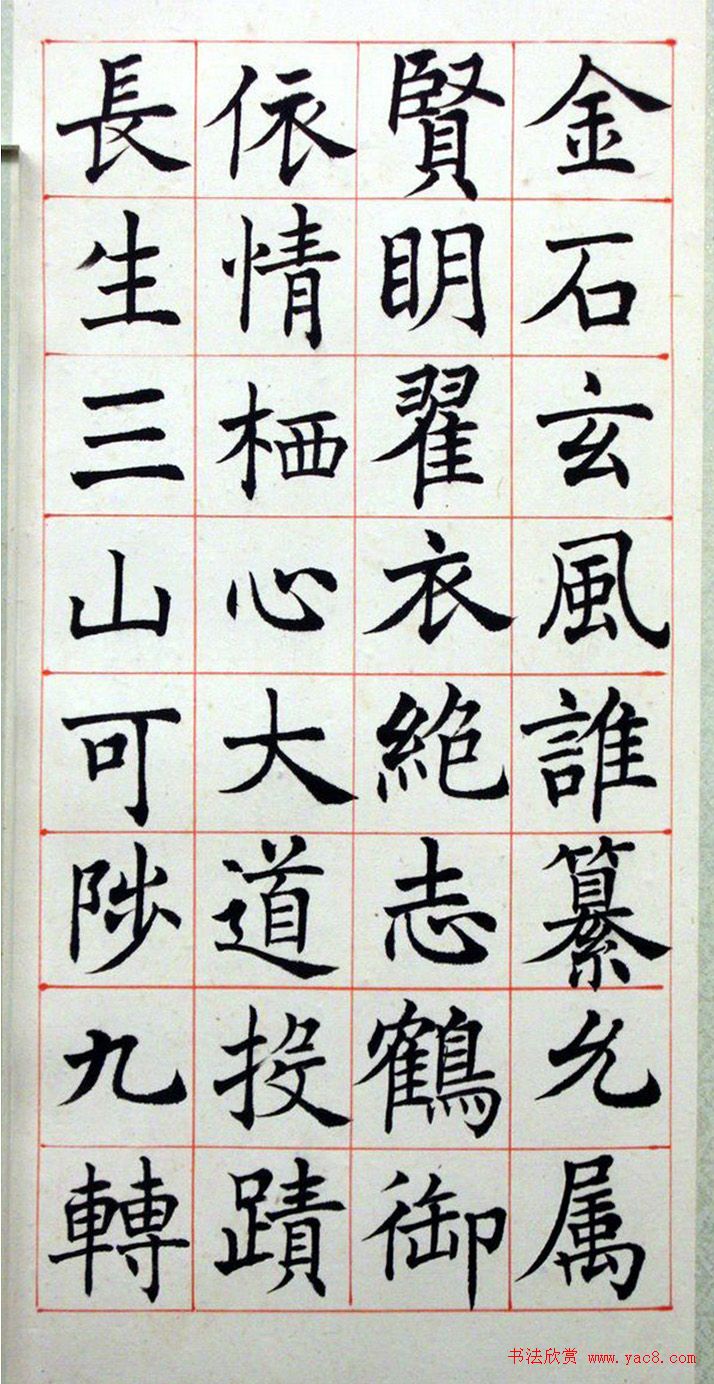 金石玄風誰纂允属
賢明翟衣絶志鶴御
依情栖心大道投蹟
長生三山可陟九轉
书法欣赏 www.yac8.com